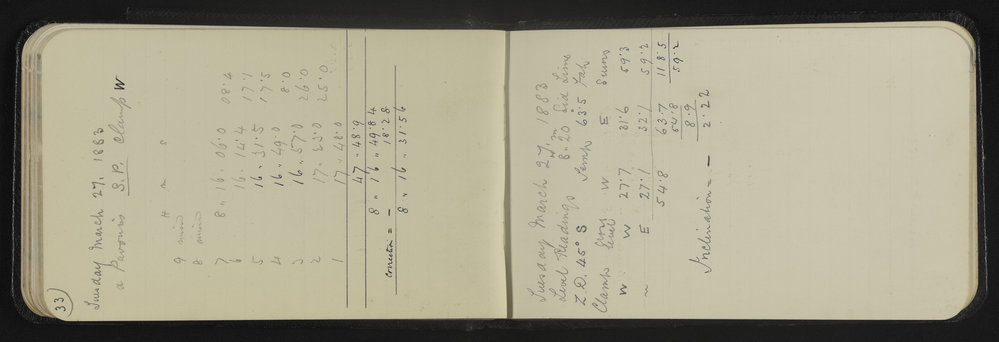 33
Tuesday March 27, 1883
α Pavonis S.P. Clamp W
H m s
9 mind
8 mind
7 8 " 16. 06.0 08.4
6 16. 14.4 17.1
5 16 " 31.5 17.5
4 16 " 49.0 8.0
3 16 " 57.0 26.0
2 17 " 23.0 25.0
1 17 " 48.0
47 " 48.9
8 " 16 " 49.84
Correction = - 18.28
8 " 16 " 31.56
Tuesday March 27, 1883
Level Readings 8 h 20 m Sid Time
Z.D. 45° S Temp 63.5 Fah
Clamp Cross Level W E Sums
W W 27.7 31.6 59.3
" E 27.1 32.1 59.2
54.8 63.7 118.5
54.8 59.2
8.9
Inclination = - 2.22